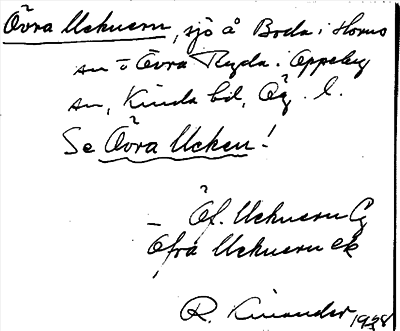 Övra Uckuern, sjö å Boda i Horns
sn o Övra Ryda i Oppeby
sn, Kinda hd, Ög. l.
Se Övra Ucken!
– Öf. Uckuern G
Öfra Uckuern ek
R. Kinander 1938